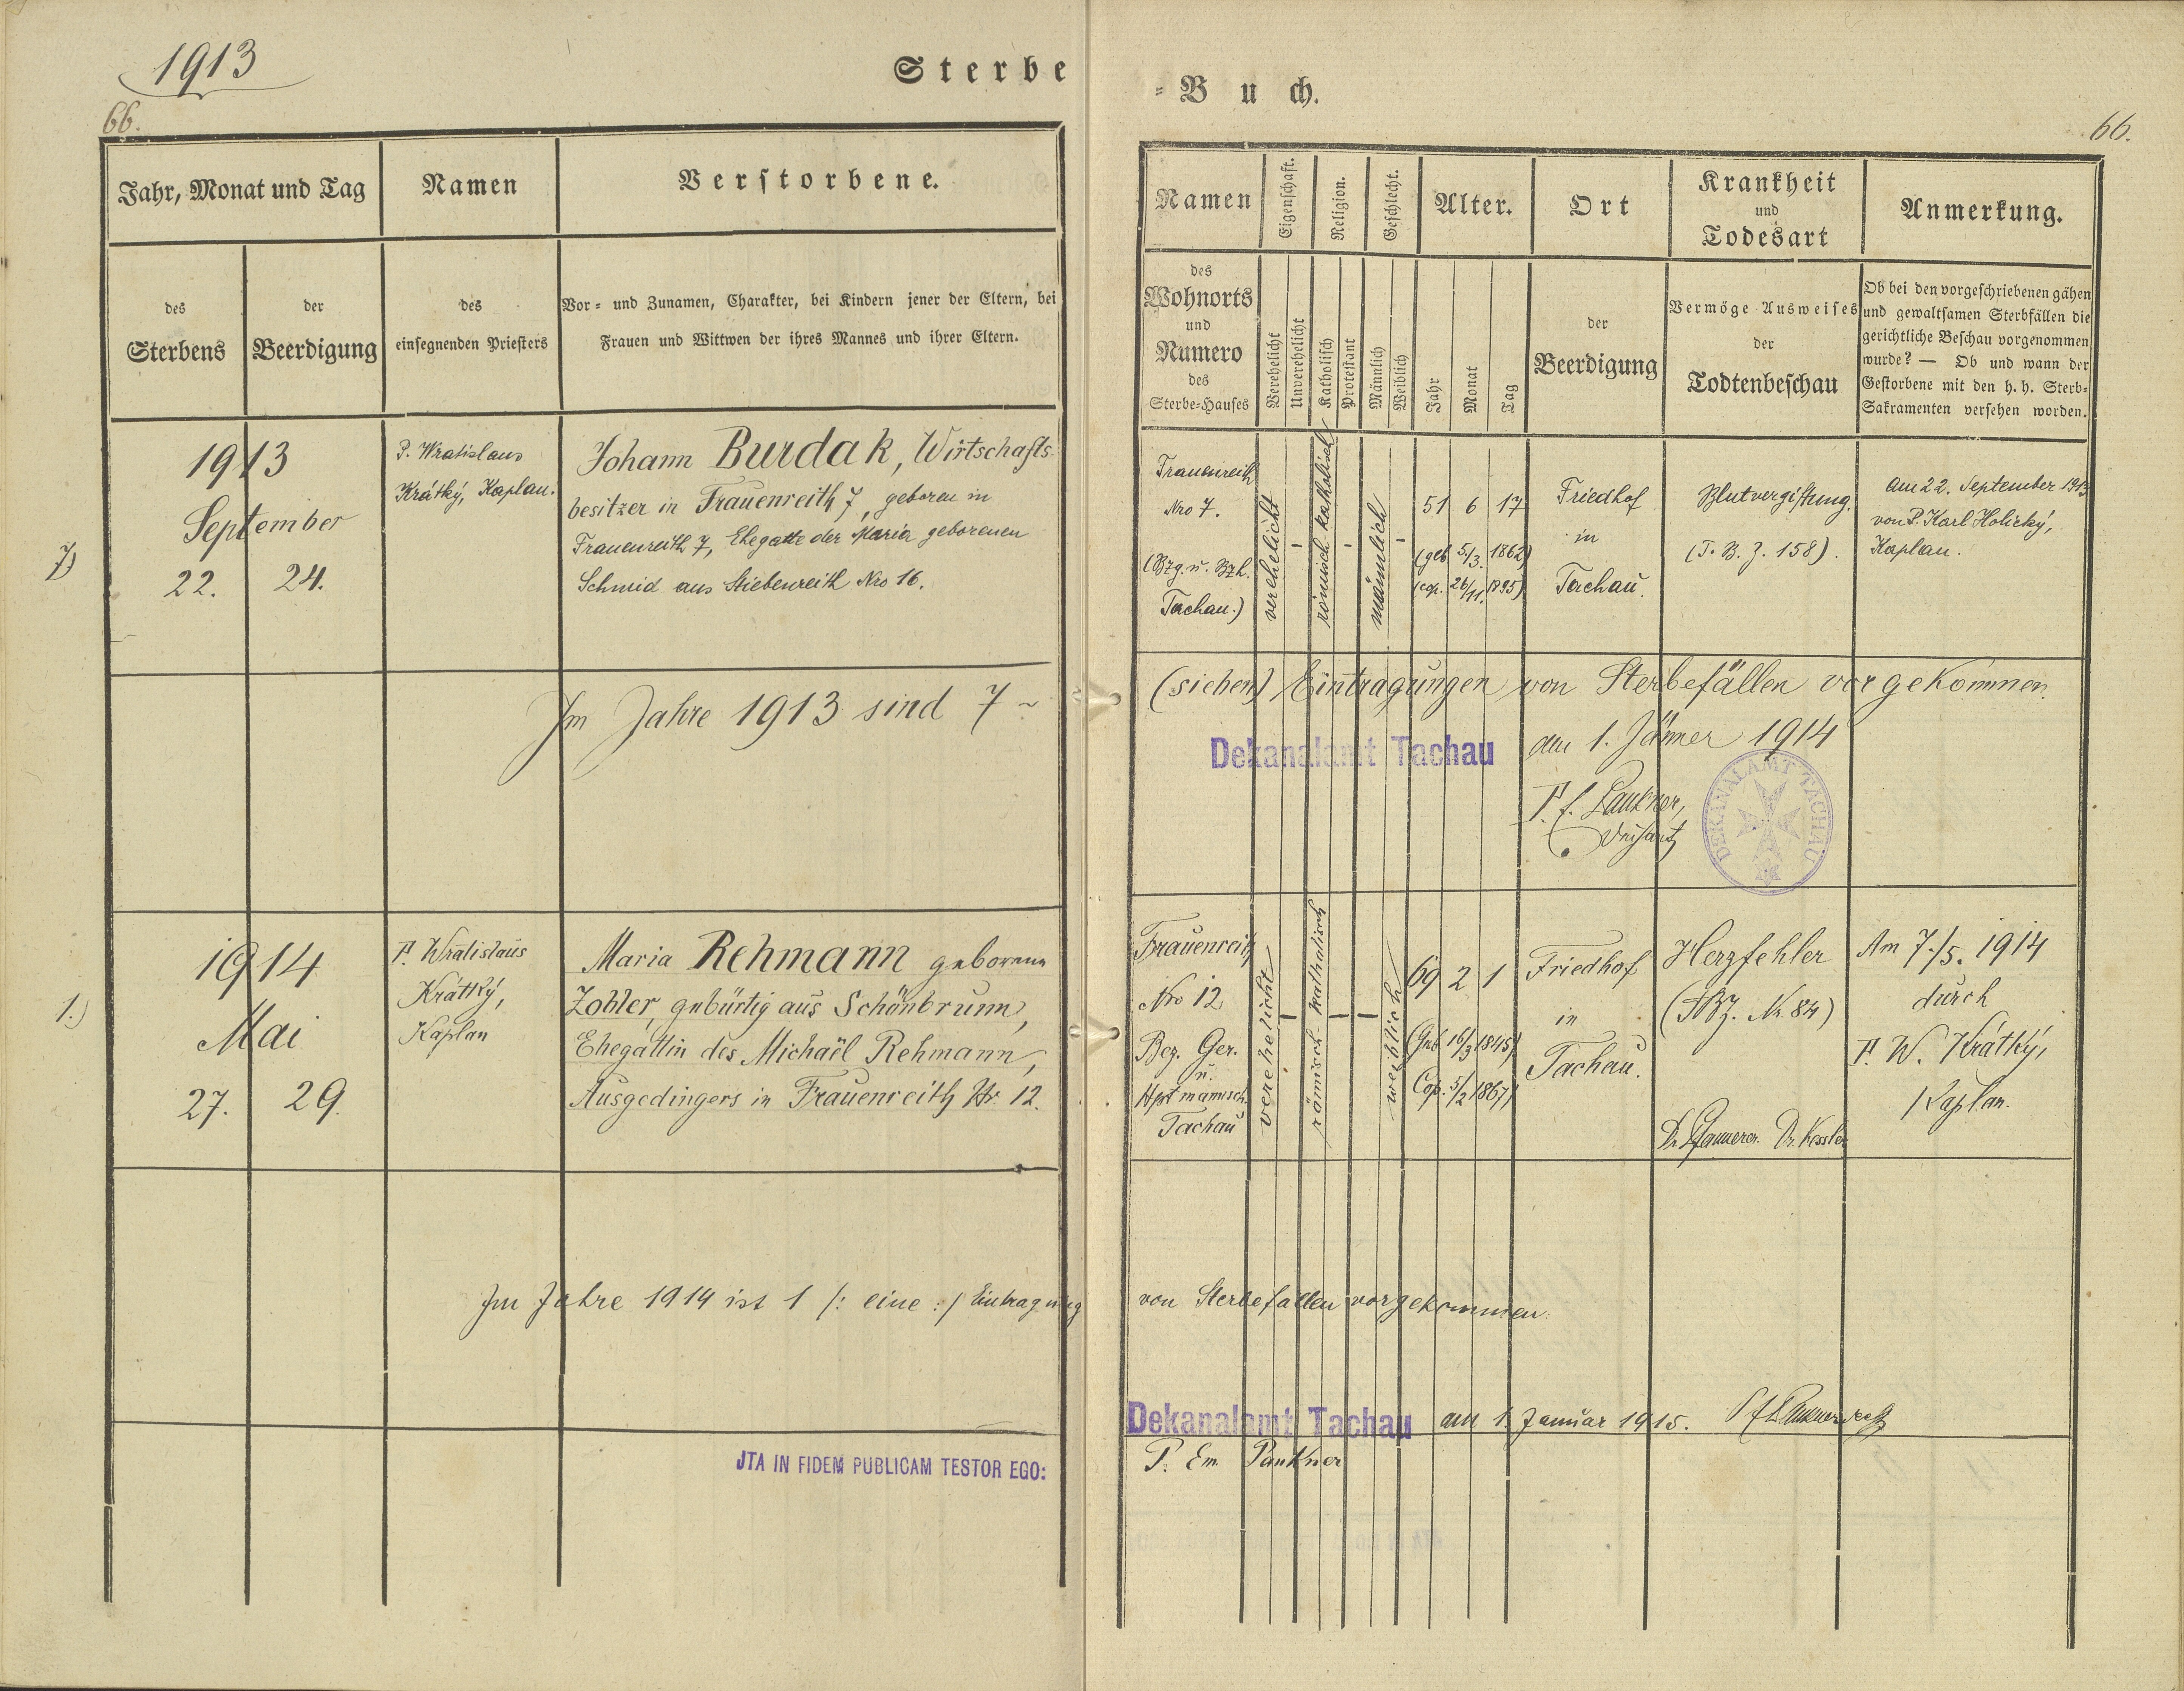 1913
Sterbe
66.
Jahr, Monat und Tag
Namen
Verstorbene.
des
Sterbens
der
Beerdigung
des
einsegnenden Priesters
Vor- und Zunamen, Charakter, bei Kindern jener der Eltern, bei
Frauen und Wittwen der ihres Mannes und ihrer Eltern.
7)
1913
September
22.
24.
P. Wratislaus
Krátký, Kaplan.
Johann Burdak, Wirtschafts
besitzer in Frauenreith 7, geboren in
Frauenreith 7, Ehegatte der Maria geborenen
Schmid aus Stiebenreith Nro 16.
Im Jahre 1913 sind 7
1.)
1914
Mai
27.
29.
P. Wratislaus
Krátký,
Kaplan
Maria Rehmann geborene
Zohler, gebürtig aus Schönbrunn,
Ehegattin des Michaël Rehmann,
Ausgedingers in Frauenreith Nr 12.
Im Jahre 1914 ist 1 /: eine :/ Eintragung
JTA IN FIDEM PUBLICAM TESTOR EGO:
-Buch.
66.
Namen
Eigenschaft.
Religion.
Geschlecht.
Alter.
Ort
Krankheit
und
Todesart
Anmerkung.
des
Wohnorts
und
Numero
des
Sterbe-Hauses
Verehelicht
Unverehelicht
Katholisch
Protestant
Männlich
Weiblich
Jahr
Monat
Tag
der
Beerdigung
Vermöge Ausweises
der
Todtenbeschau
Ob bei den vorgeschriebenen gähen
und gewaltsamen Sterbfällen die
gerichtliche Beschau vorgenommen
wurde? — Ob und wann der
Gestorbene mit den h. h. Sterb-
Sakramenten versehen worden.
Frauenreith
Nro 7.
(Bzg. u. Bzh.
Tachau.)
verehelicht
-
römisch-katholisch
-
männlich
-
51 6 17
(geb. 5/3. 1862)
(cop. 26/11. 1895)
Friedhof
in
Tachau.
Blutvergiftung.
(T. B. Z. 158).
Am 22. September 1913
von P. Karl Holický,
Kaplan.
(sieben) Eintragungen von Sterbefällen vorgekommen.
Dekanalamt Tachau
am 1. Jänner 1914
Paukner,
Dechant
DEKANALAMT TACHAU
Frauenreith
Nro 12
Bez. Ger.
u.
Hptmannsch.
Tachau
verehelicht
-
römisch-katholisch
-
-
weiblich
69 2 1
(Geb. 16/3 1845)
Cop. 5/2 1867)
Friedhof
in
Tachau.
Herzfehler
(TBZ. Nr. 84)
Dr. Kessler
Am 7./5. 1914
durch
P. W. Krátký,
Kaplan.
von Sterbefällen vorgekommen.
Dekanalamt Tachau
am 1. Januar 1915.
P. Em. Paukner